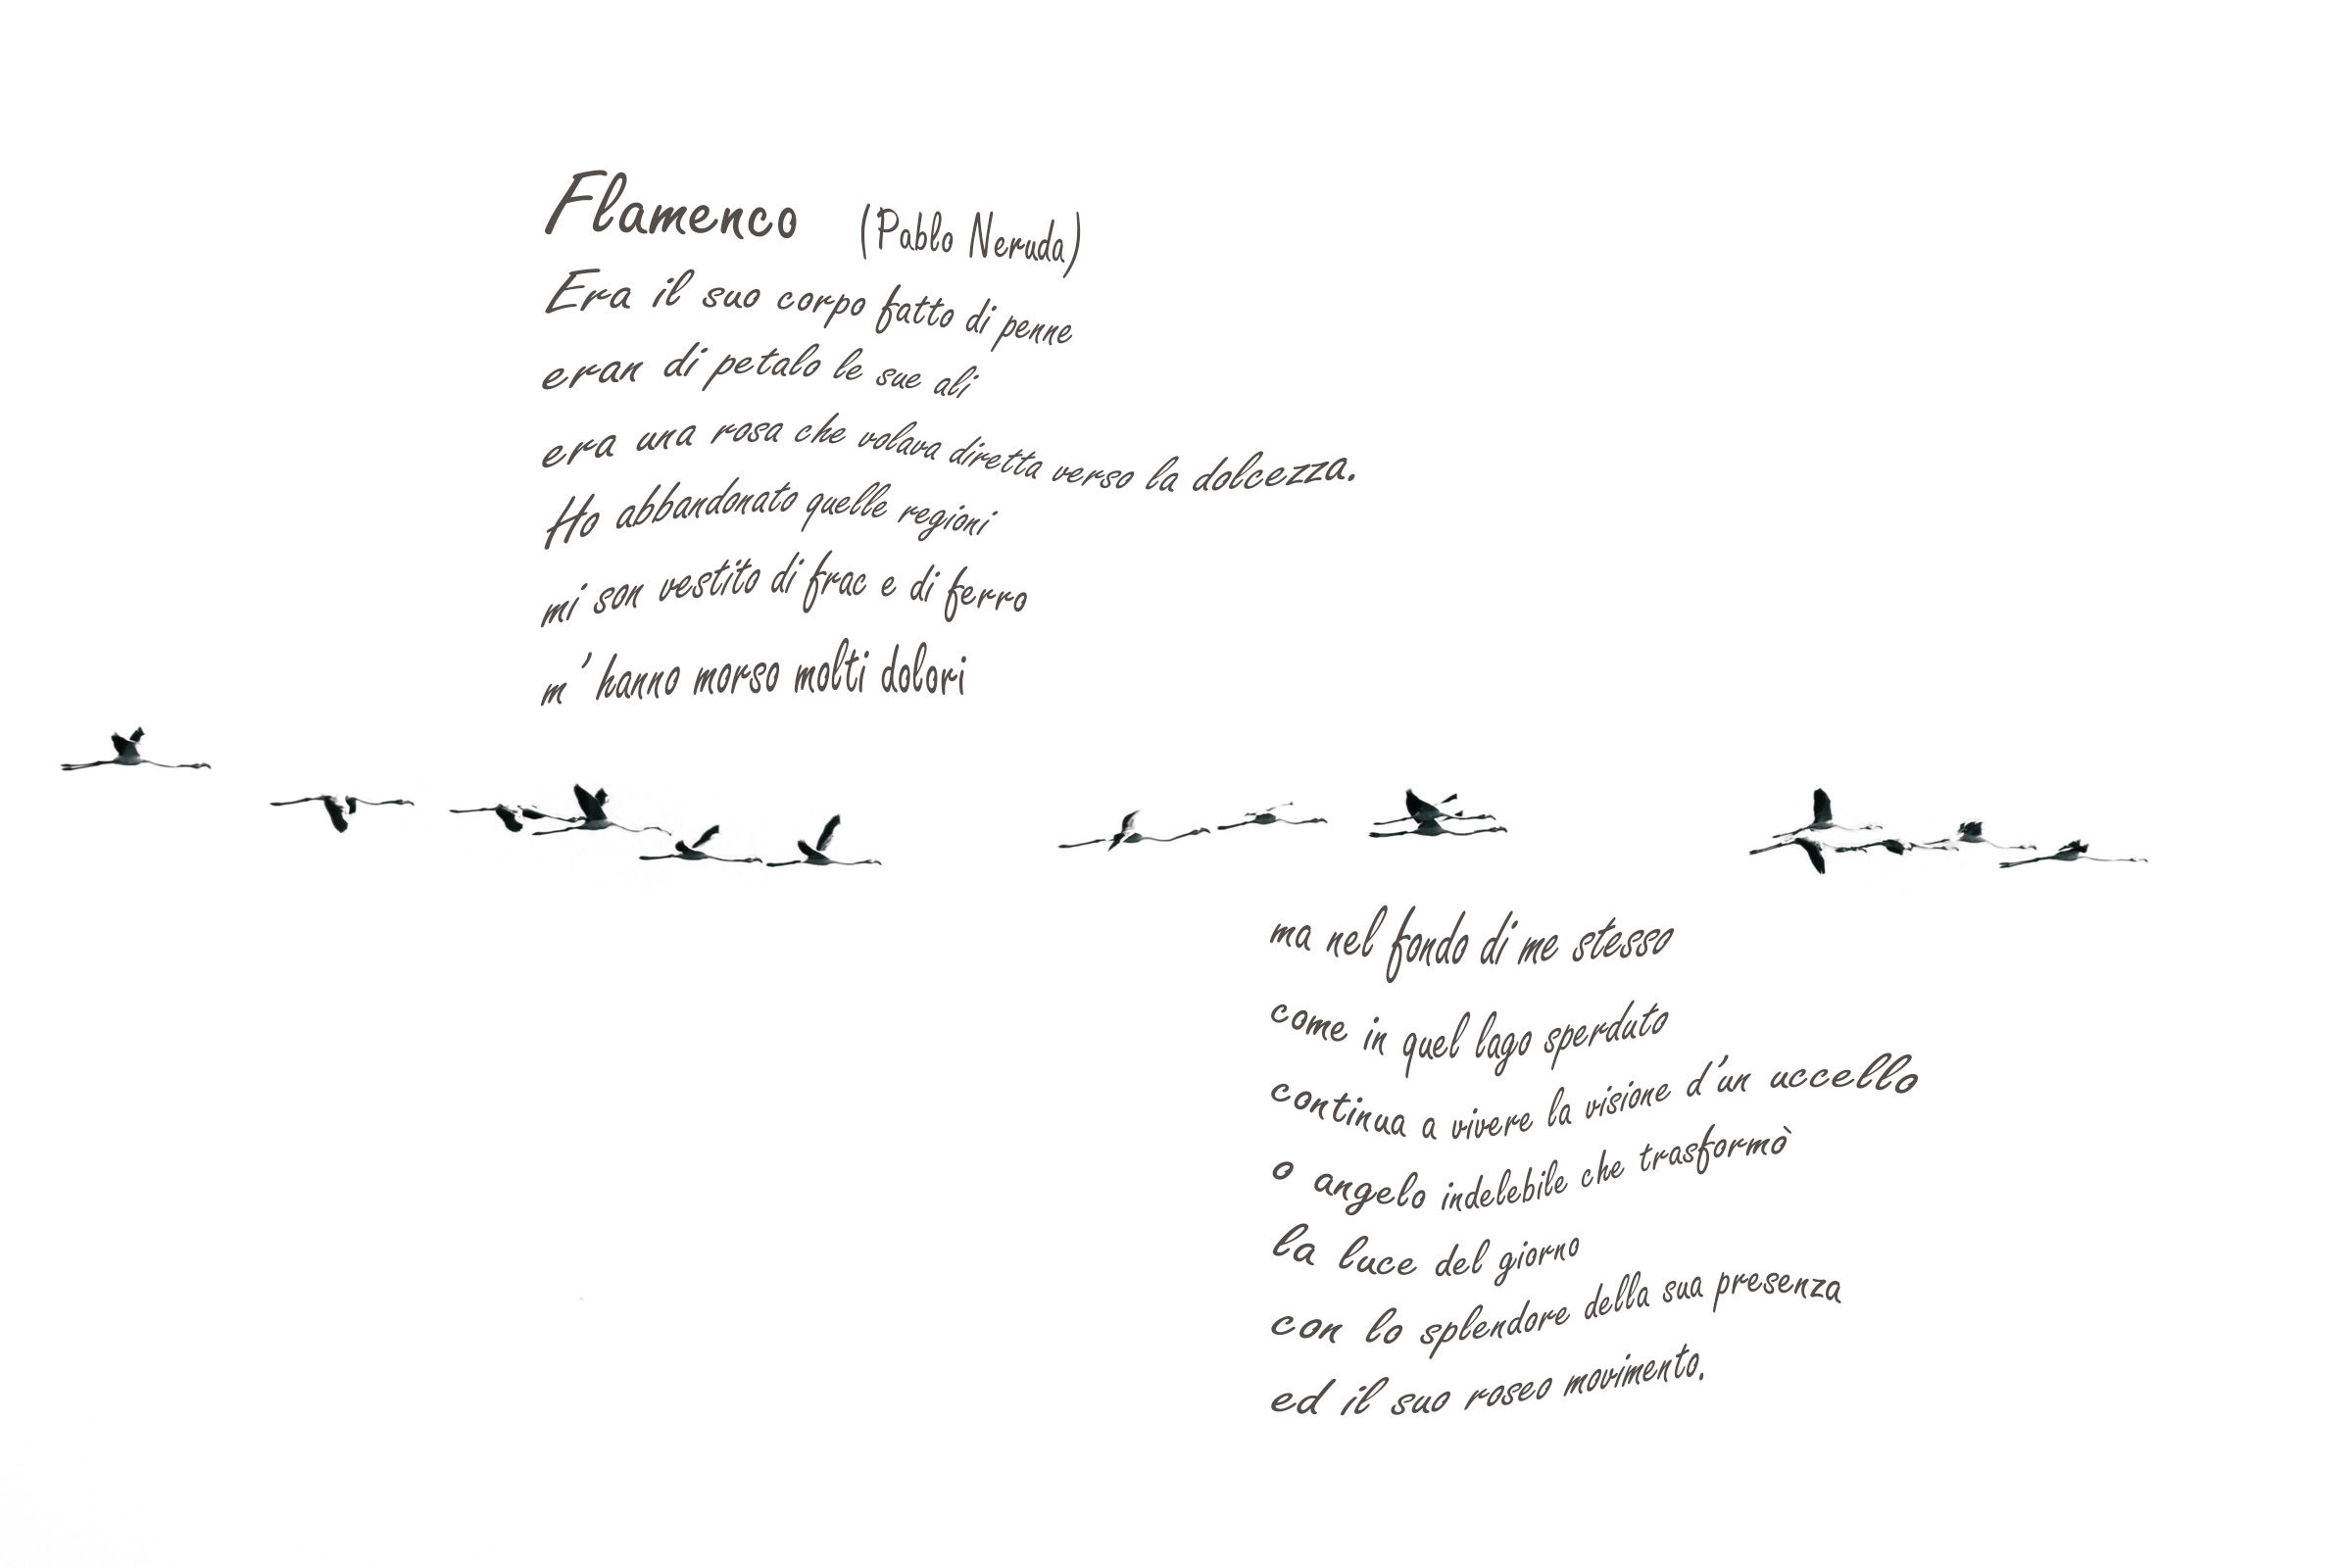 Flamenco (Pablo Neruda)
Era il suo corpo fatto di penne
eran di petalo le sue ali
era una rosa che volava diretta verso la dolcezza.
Ho abbandonato quelle regioni
mi son vestito di frac e di ferro
m' hanno morso molti dolori
ma nel fondo di me stesso
come in quel lago sperduto
continua a vivere la visione d'un uccello
o angelo indelebile che trasformò
la luce del giorno
con lo splendore della sua presenza
ed il suo roseo movimento.